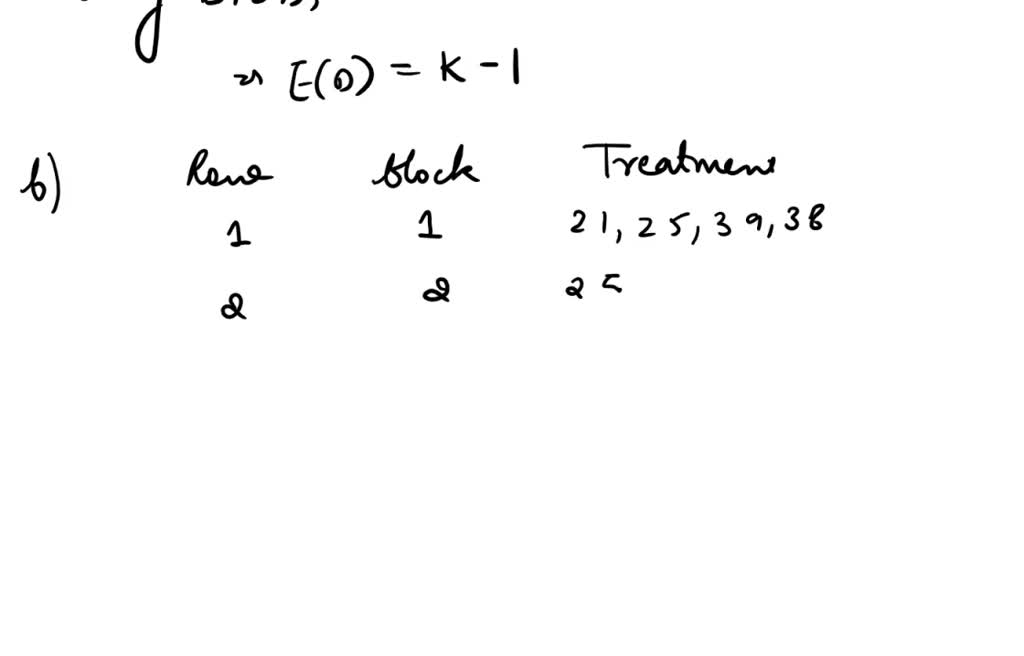 ⇒ E(0) = K - 1
b) Rank block Treatment
1 1 21, 25, 39, 38
2 2 25